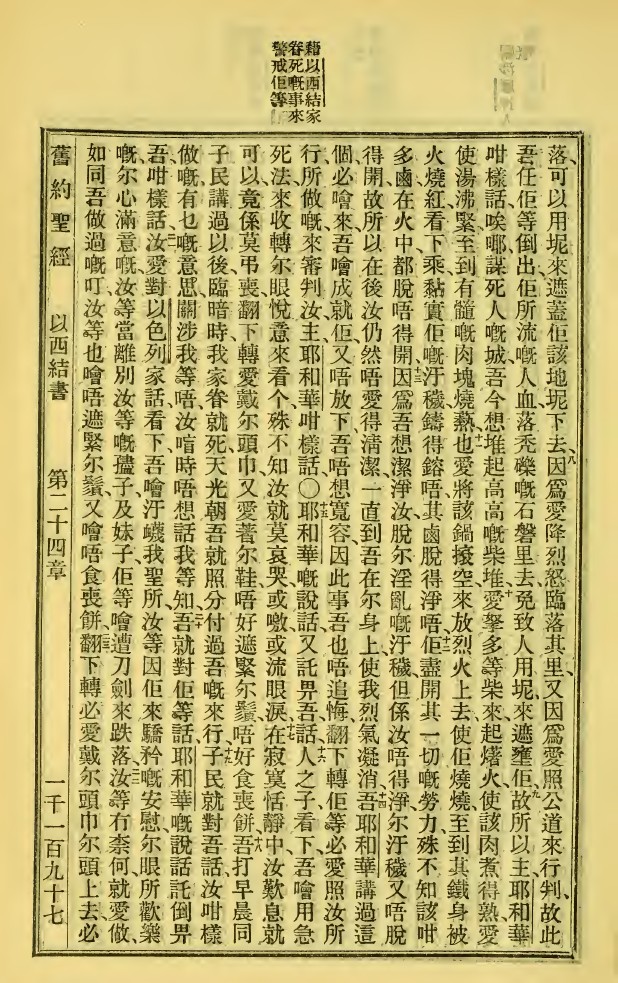 藉以西結家
眷死嘅事來
警戒佢等
落、可以用坭來遮蓋佢該地坭下去、八因爲愛降烈怒臨落其里、又因爲愛照公道來行判、故此
吾任佢等倒出佢所流嘅人血落禿磔嘅石磐里去、免致人用坭來遮壅佢、九故所以主耶和華
咁樣話、唉哪謀死人嘅城、吾今想堆起高高嘅柴堆、十愛拏多等柴來起爗火、使該肉煮得熟、愛
使湯沸緊、至到有髓嘅肉塊燒爇也、十一愛將該鍋㨢空來放烈火上去、使佢燒燒、至到其鐵身被
火燒紅、看下乘黏實佢嘅汙穢鑄得鎔唔、其鹵脫得淨唔、十二佢盡開其一切嘅勞力、殊不知該咁
多鹵在火中都脫唔得開、十三因爲吾想潔淨汝脫尔淫亂嘅汙穢、但係汝唔得淨、尔汙穢又唔脫
得開、故所以在後汝仍然唔愛得淸潔、一直到吾在尔身上使我烈氣凝消、十四吾耶和華講過、這
個必噲來、吾噲成就佢、又唔放下、吾唔想寬容、因此事吾也唔追悔、翻下轉佢等必愛照汝所
行所做嘅來審判汝、主耶和華咁樣話、〇十五耶和華嘅說話又託畀吾話、十六人之子、看下、吾噲用急
死法來收轉尔眼悅意來看個、殊不知汝就莫哀哭、或噭、或流眼淚、十七在寂寞恬靜中汝歎息就
可以、竟係莫弔喪、翻下轉愛戴尔頭巾、又愛著尔鞋、唔好遮緊尔鬚、唔好食喪餅、十八吾打早晨同
子民講過以後、臨暗時我家眷就死、天光朝吾就照分付過吾嘅來行、十九子民就對吾話、汝咁樣
做嘅有乜嘅意思關涉我等唔、汝唔時唔想話我等知、二十吾就對佢等話、耶和華嘅說話託倒畀
吾、咁樣話、汝愛對以色列家話、看下、吾噲汙衊我聖所、汝等因佢來驕矜嘅、安慰尔眼、所歡樂
嘅、尔心滿意嘅、汝等當離別汝等嘅孻子及妹子、佢等噲遭刀劍來跌落、汝等冇柰何就愛做、
如同吾做過嘅叮、汝等也噲唔遮緊尔鬚、又噲唔食喪餅、翻下轉必愛戴尔頭巾尔頭上去、必
舊約聖經 以西結書 第二十四章 一千一百九十七